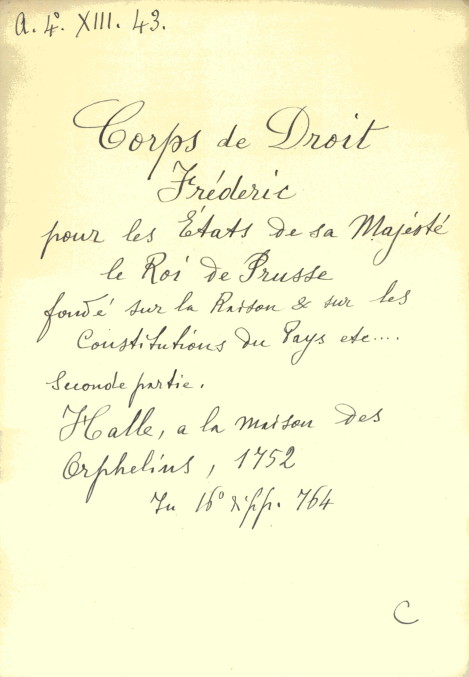 A. 4º. XIII. 43.
Corps de Droit
Fréderic
pour les États de sa Majésté
le Roi de Prusse
fondé sur la Raison & sur les
Constitutions du Pays etc....
Seconde partie.
Halle, a la maison des
Orphelins, 1752
In 16º di pp. 764
C